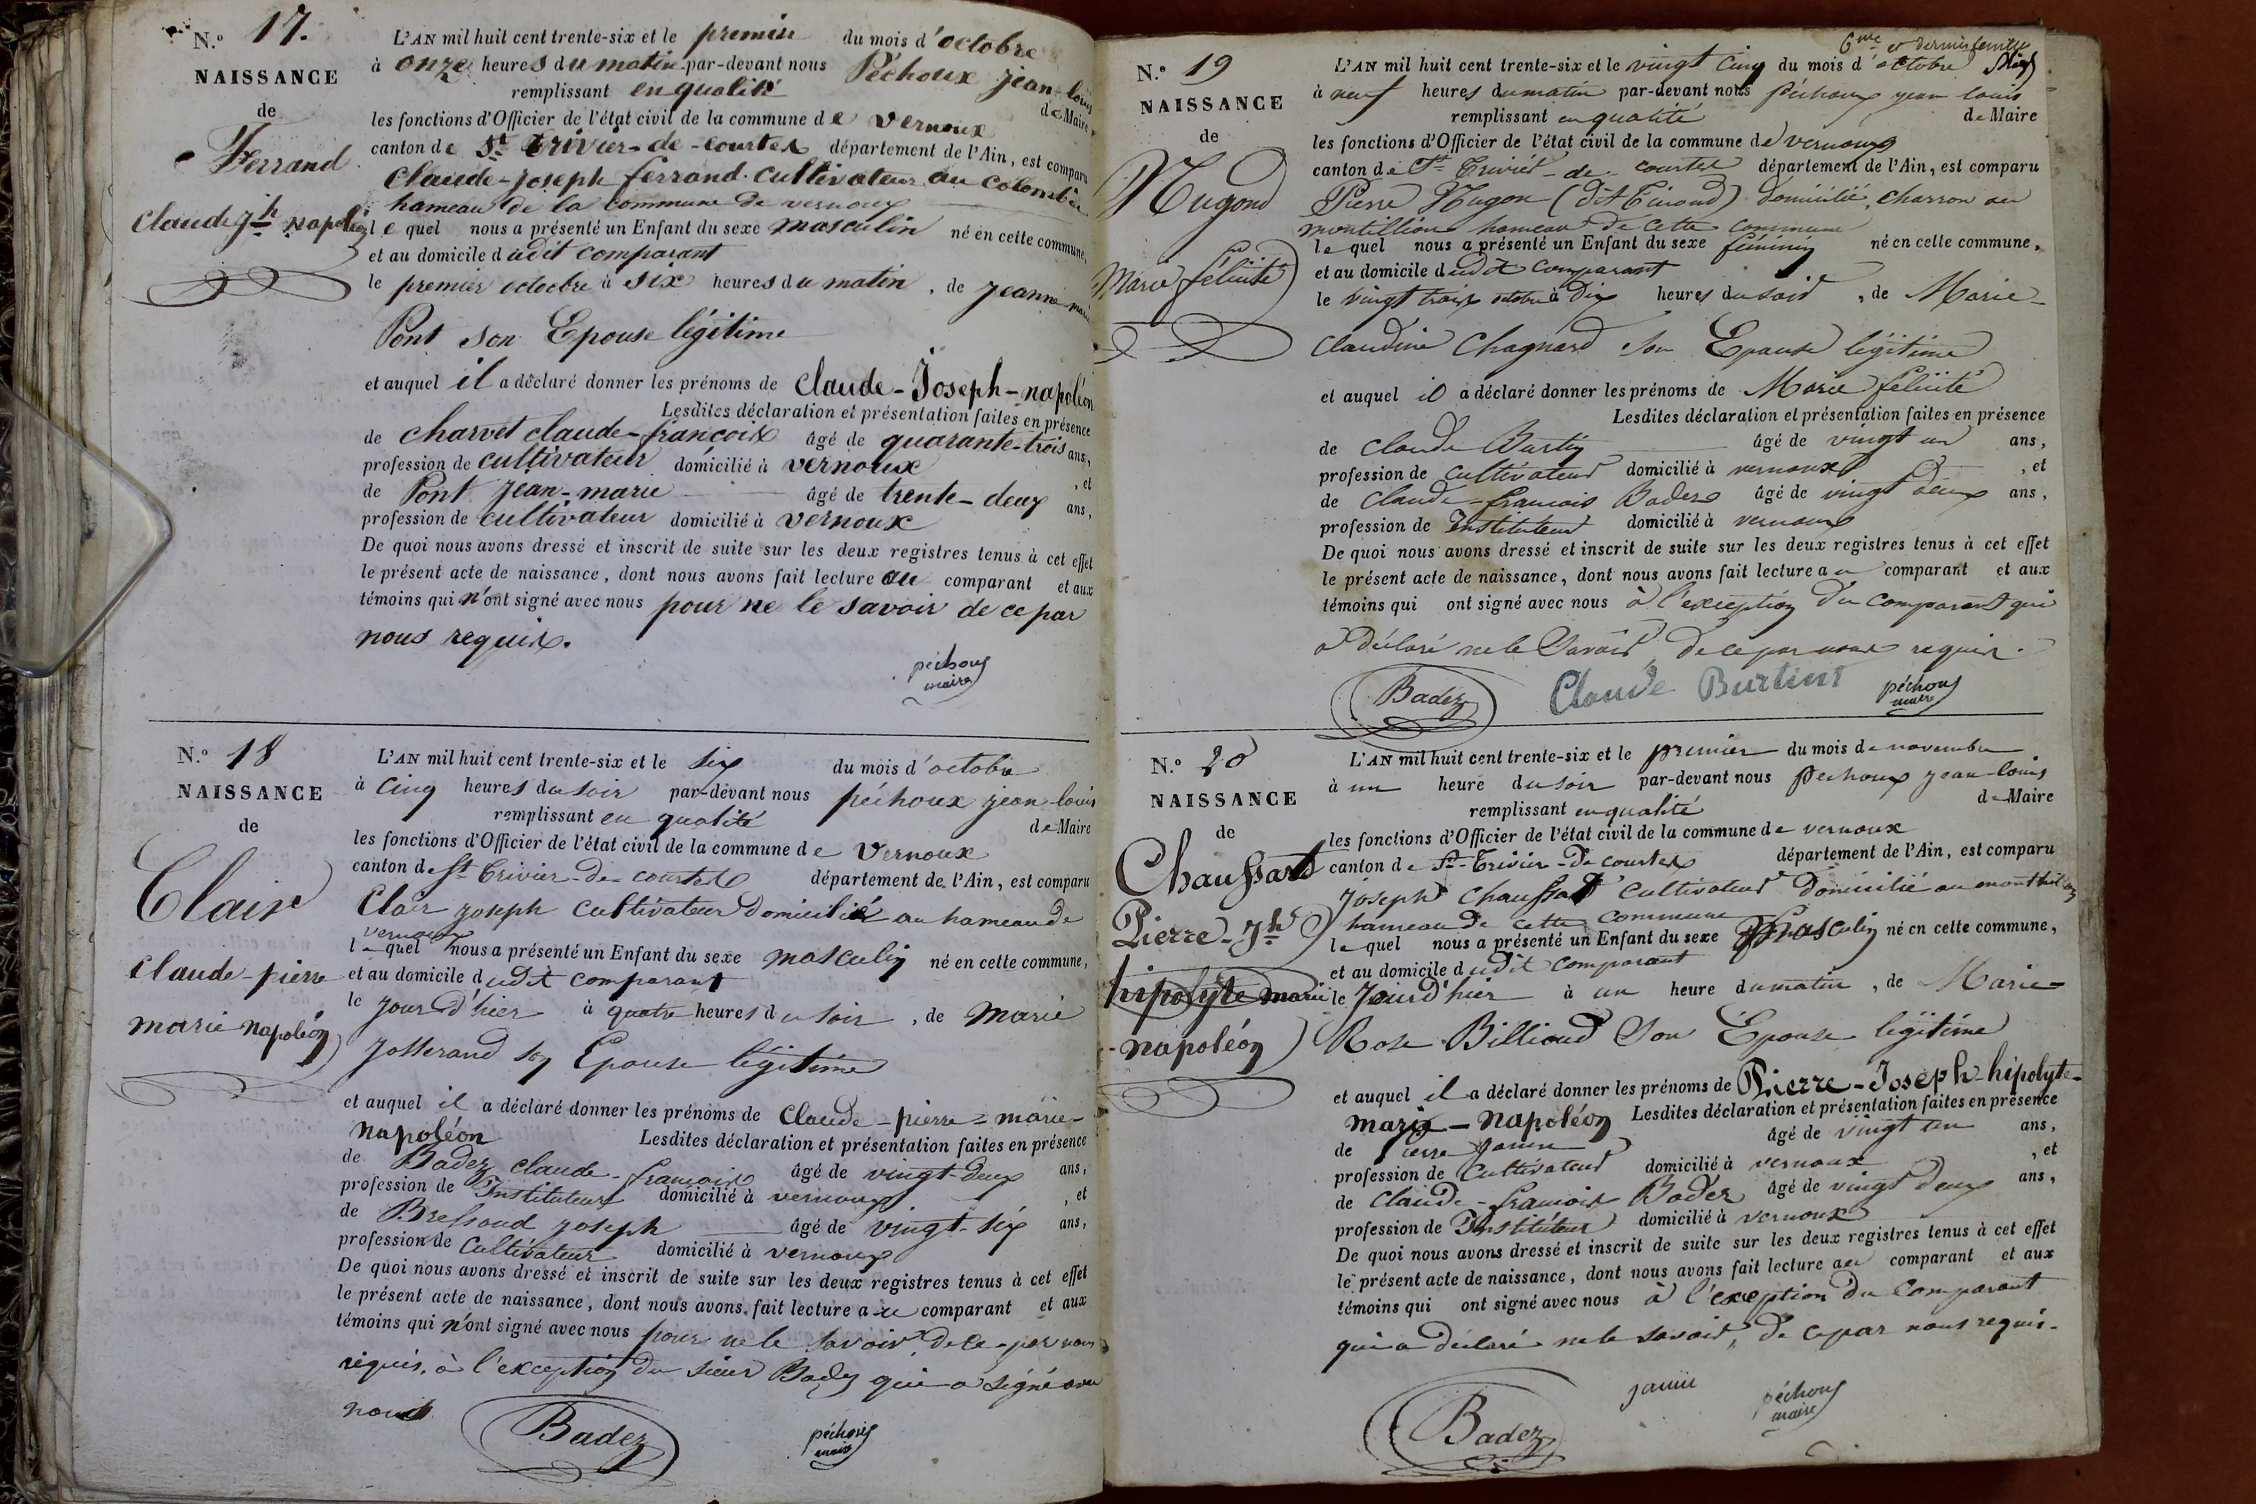 N.º 17.
NAISSANCE
de
Ferrand
Claude Jh napoléon
L'AN mil huit cent trente-six et le premier du mois d'octobre
à onze heures du matin par-devant nous Péchoux jean-louis
remplissant en qualité de Maire,
les fonctions d'Officier de l'état civil de la commune de vernoux
canton de St trivier-de-courtes département de l'Ain, est comparu
Claude-joseph ferrand. cultivateur au colombier
hameau de la commune de vernoux
le quel nous a présenté un Enfant du sexe masculin né en cette commune,
et au domicile dudit comparant
le premier octobre à six heures du matin, de jeanne marie
Pont son Epouse légitime
et auquel il a déclaré donner les prénoms de claude-Joseph-napoléon
Lesdites déclaration et présentation faites en présence
de charvet claude-françois âgé de quarante-trois ans,
profession de cultivateur domicilié à vernoux , et
de Pont jean-marie âgé de trente-deux ans,
profession de cultivateur domicilié à vernoux
De quoi nous avons dressé et inscrit de suite sur les deux registres tenus à cet effet
le présent acte de naissance, dont nous avons fait lecture au comparant et aux
témoins qui n'ont signé avec nous pour ne le savoir de ce par
nous requis.
péchoux
maire
N.º 18
NAISSANCE
de
Clair
claude-pierre
marie napoléon
L'AN mil huit cent trente-six et le six du mois d'octobre
à cinq heures du soir par-devant nous péchoux jean-louis
remplissant en qualité de Maire
les fonctions d'Officier de l'état civil de la commune de vernoux
canton de St trivier-de-courtes département de l'Ain, est comparu
Clair joseph cultivateur domicilié au hameau de
vernoux
le quel nous a présenté un Enfant du sexe masculin né en cette commune,
et au domicile dudit comparant
le jour d'hier à quatre heures du soir, de marie
Josserand son Epouse légitime
et auquel il a déclaré donner les prénoms de claude-pierre-marie-
napoléon Lesdites déclaration et présentation faites en présence
de Badez claude-françois âgé de vingt-deux ans,
profession de Instituteur domicilié à vernoux , et
de Bressoud joseph âgé de vingt-six ans,
profession de cultivateur domicilié à vernoux
De quoi nous avons dressé et inscrit de suite sur les deux registres tenus à cet effet
le présent acte de naissance, dont nous avons fait lecture au comparant et aux
témoins qui n'ont signé avec nous pour ne le savoir de ce par nous
requis, à l'exception du sieur Badez qui a signé avec
nous
Badez péchoux
maire
6me et dernier feuillet
N.º 19
NAISSANCE
de
Nugond
Marie félicité
L'AN mil huit cent trente-six et le vingt cinq du mois d'octobre
à neuf heures du matin par-devant nous péchoux jean louis
remplissant en qualité de Maire
les fonctions d'Officier de l'état civil de la commune de vernoux
canton de St Trivier-de-courtes département de l'Ain, est comparu
Pierre Nugon (dit Tinaud) domicilié, charron au
montillion hameau de cette commune
le quel nous a présenté un Enfant du sexe féminin né en cette commune,
et au domicile dudit comparant
le vingt trois octobre à dix heures du soir, de Marie-
claudine Chagnard son Epouse légitime
et auquel il a déclaré donner les prénoms de Marie félicité
Lesdites déclaration et présentation faites en présence
de claude Burtin âgé de vingt un ans,
profession de cultivateur domicilié à vernoux , et
de claude-françois Badez âgé de vingt deux ans,
profession de Instituteur domicilié à vernoux
De quoi nous avons dressé et inscrit de suite sur les deux registres tenus à cet effet
le présent acte de naissance, dont nous avons fait lecture au comparant et aux
témoins qui ont signé avec nous à l'exception du comparant qui
a déclaré ne le savoir de ce par nous requis.
Badez Claude Burtin péchoux
maire
N.º 20
NAISSANCE
de
Chaussart
Pierre-Jh
hipolyte marie
-napoléon
L'AN mil huit cent trente-six et le premier du mois de novembre
à un heure du soir par-devant nous péchoux jean-louis
remplissant en qualité de Maire
les fonctions d'Officier de l'état civil de la commune de vernoux
canton de St-Trivier-de courtes département de l'Ain, est comparu
joseph chaussart cultivateur domicilié au monthillion
hameau de cette commune
le quel nous a présenté un Enfant du sexe Masculin né en cette commune,
et au domicile dudit comparant
le jourd'hier à un heure du matin, de Marie-
Rose Billioud son Epouse légitime
et auquel il a déclaré donner les prénoms de Pierre-Joseph-hipolyte-
marie-napoléon Lesdites déclaration et présentation faites en présence
de Pierre janin âgé de vingt un ans,
profession de cultivateur domicilié à vernoux , et
de claude-françois Badez âgé de vingt deux ans,
profession de Instituteur domicilié à vernoux
De quoi nous avons dressé et inscrit de suite sur les deux registres tenus à cet effet
le présent acte de naissance, dont nous avons fait lecture au comparant et aux
témoins qui ont signé avec nous à l'exception du comparant
qui a déclaré ne le savoir, de ce par nous requis.
Badez janin péchoux
maire